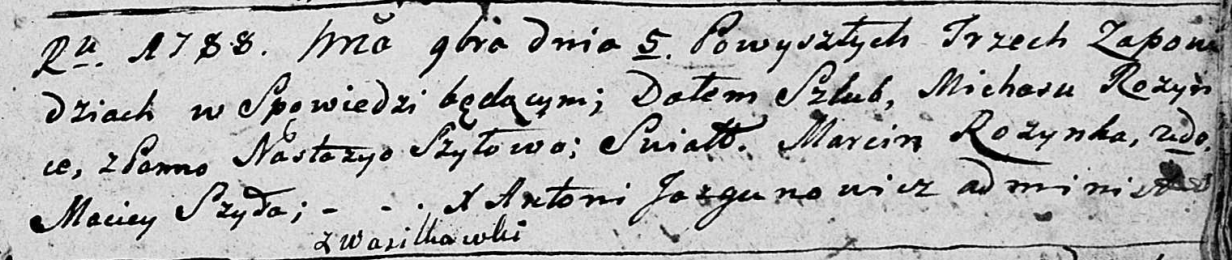 Ru. 1788. Mca 9bra dnia 5. Powyszłych Trzech Zapow
dziach w Spowiedzi będącym; Dałem Szlub, Michału Rozyn
ce, z Panno Nastazyo Szyłowo; Swiatt. Marcin Rozynka, udo.
Maciey Szyła; - - . X Antoni Jazgunowicz administ
z Wasilkowki